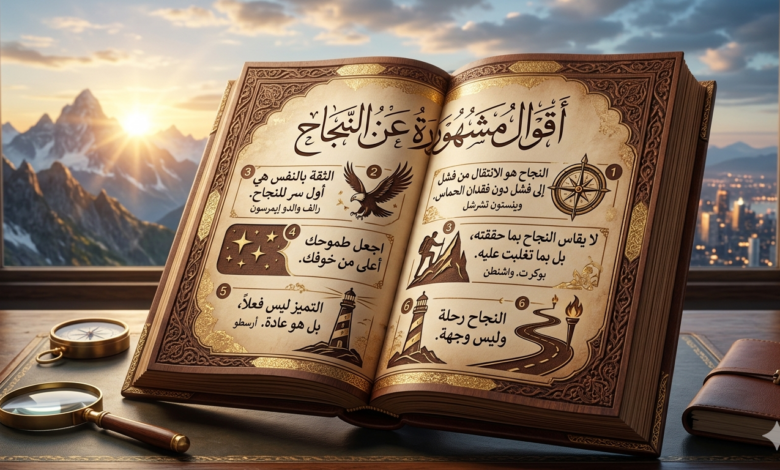 أقوال مشهورة عن النجاح
1
النجاح هو الانتقال من فشل
إلى فشل دون فقدان الحماس.
وينستون تشرشل
3
لا يقاس النجاح بما حققته،
بل بما تغلبت عليه.
بوكر ت. واشنطن
6
6
النجاح رحلة
وليس وجهة.
2
3
الثقة بالنفس هي
أول سر للنجاح.
رالف والدو إيمرسون
4
اجعل طموحك
أعلى من خوفك.
5
التميز ليس فعلاً،
بل هو عادة. أرسطو